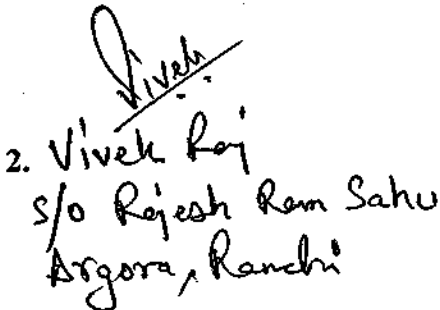 Vivek
2. Vivek Raj
S/o Rajesh Ram Sahu
Argora, Ranchi